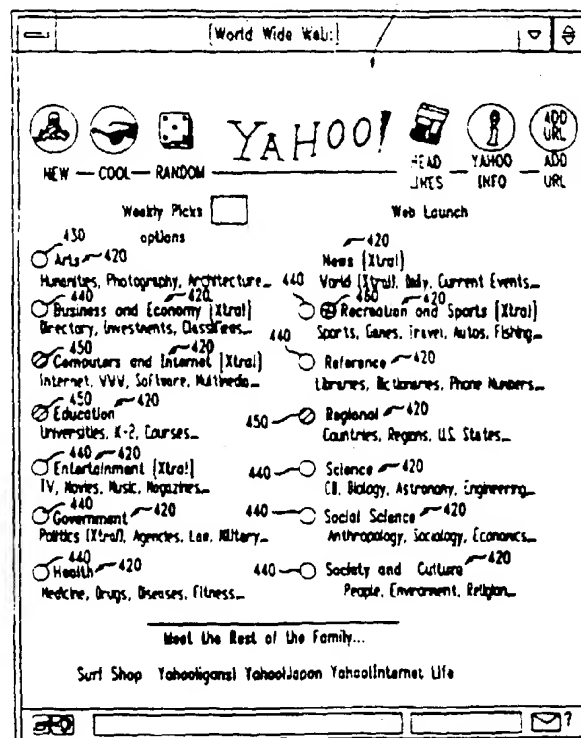 [World Wide Web:]
YAHOO!
ADD URL
NEW — COOL — RANDOM
HEAD LINES — YAHOO INFO — ADD URL
Weekly Picks
Web Launch
options
430
Arts 420
Humanities, Photography, Architecture...
440 420
Business and Economy [Xtra!]
Directory, Investments, Classifieds...
450 420
Computers and Internet [Xtra!]
Internet, WWW, Software, Multimedia...
450 420
Education
Universities, K-2, Courses...
440 420
Entertainment [Xtra!]
TV, Movies, Music, Magazines...
440
Government 420
Politics [Xtra!], Agencies, Law, Military...
440
Health 420
Medicine, Drugs, Diseases, Fitness...
420
News [Xtra!]
World [Xtra!], Daily, Current Events...
440 460 420
Recreation and Sports [Xtra!]
Sports, Games, Travel, Autos, Fishing...
440
Reference 420
Libraries, Dictionaries, Phone Numbers...
450 Regional 420
Countries, Regions, U.S. States...
440 Science 420
CS, Biology, Astronomy, Engineering...
440 Social Science 420
Anthropology, Sociology, Economics...
440 Society and Culture 420
People, Environment, Religion...
Meet the Rest of the Family...
Surf Shop Yahooligans! Yahoo!Japan Yahoo!Internet Life
?